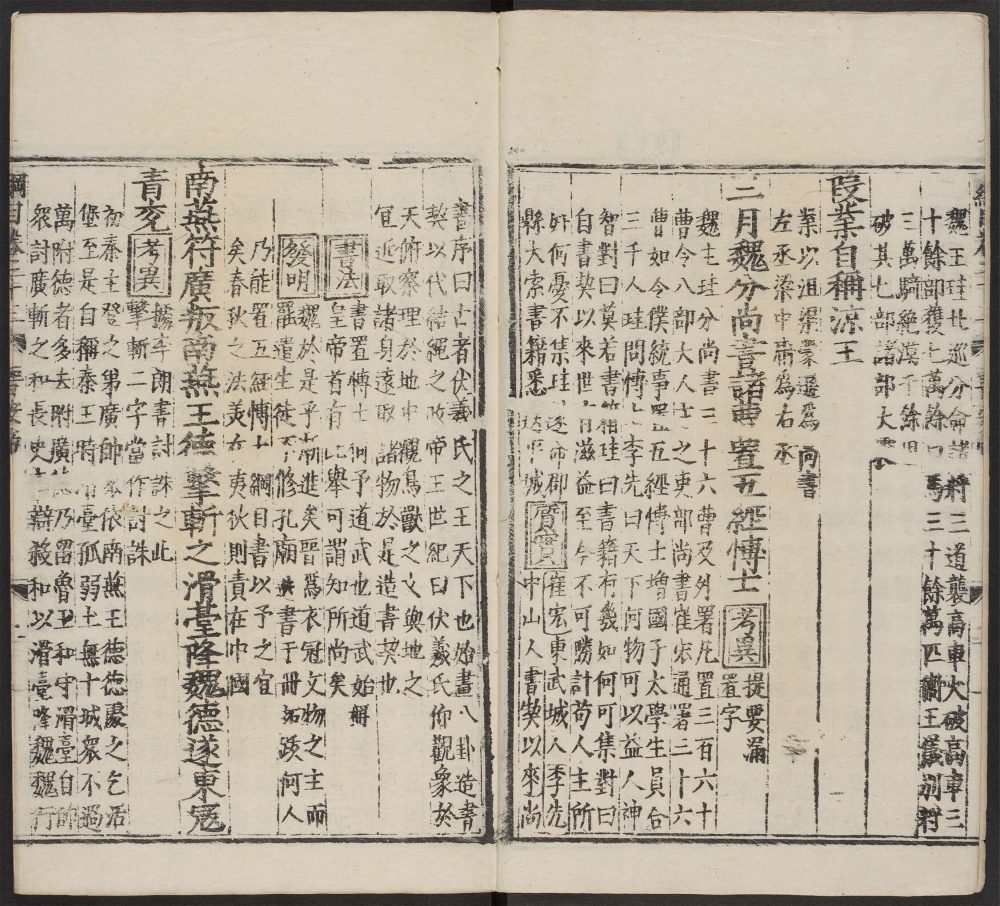 魏王珪北巡分命諸將三道襲高車大破高車三
十餘部獲七萬餘口馬三十餘萬匹衛王儀別將
三萬騎絕漠千餘里
破其七部諸部大
段業自稱涼王
業以沮渠蒙遜為尚書
左丞梁中庸為右丞
二月魏分尚書諸曹置五經博士 考異 提要漏
置字
魏主珪分尚書三十六曹及外署凡置三百六十
曹令八部大人主之吏部尚書崔宏通署三十六
曹如令僕統事置五經博士增國子太學生員合
三千人珪問博士李先曰天下何物可以益人神
智對曰莫若書籍珪曰書籍有幾如何可集對曰
自書契以來世有滋益至今不可勝計苟人主所
好何憂不集珪遂命郡
縣大索書籍悉送平城 質實 崔宏東武城人李先
中山人書契以來尚
書序曰古者伏羲氏之王天下也始畫八卦造書
契以代結繩之政帝王世紀曰伏羲氏仰觀象於
天俯察理於地中觀鳥獸之文與地之
宜近取諸身遠取諸物於是造書契也
書法 書置博士何予道武也道武始觧
皇帝首有此舉可謂知所尚矣
發明 魏於是乎漸進矣晉為衣冠文物之主而
罷遣生徒不修孔廟書于冊拓跋何人
乃能置五經博士綱目書以予之宜
矣春秋之法美在夷狄則責在中國
南燕苻廣叛南燕王德擊斬之滑臺降魏德遂東寇
青兗 考異 據李朗書討誅之此
擊斬二字當作討誅
初秦主登之弟廣帥衆依南燕王德德處之乞活
堡至是自稱秦王時滑臺孤弱土無十城衆不過
萬附德者多去附廣德乃留魯王和守滑臺自帥
衆討廣斬之和長史李辯殺和以滑臺降魏魏行